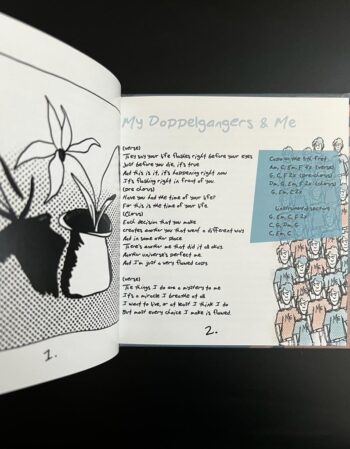 1.
My Doppelgangers & Me
(verse)
They say your life flashes right before your eyes
Just before you die, it's true
And this is it, it's happening right now
It's flashing right in front of you
(pre chorus)
Have you had the time of your life?
For this is the time of your life
(Chorus)
Each decision that you make
creates another you that went a different way
And in some other place
There's another me that did it all
Another universe's perfect me
And I'm just a very flawed
(verse)
The things I do are a mystery to me
It's a miracle I breathe at all
I want to live, or at least I think I do
But most every choice I make is flawed
Capo on the fret
Am, C, Em, F 4x (verse)
G, C, F 2x (pre chorus)
Dm, G, Em, F 2x (chorus)
G, Em, C 2x
section
G, Em, C, F 2x
C, G, Dm, G
C, Em, C
2.